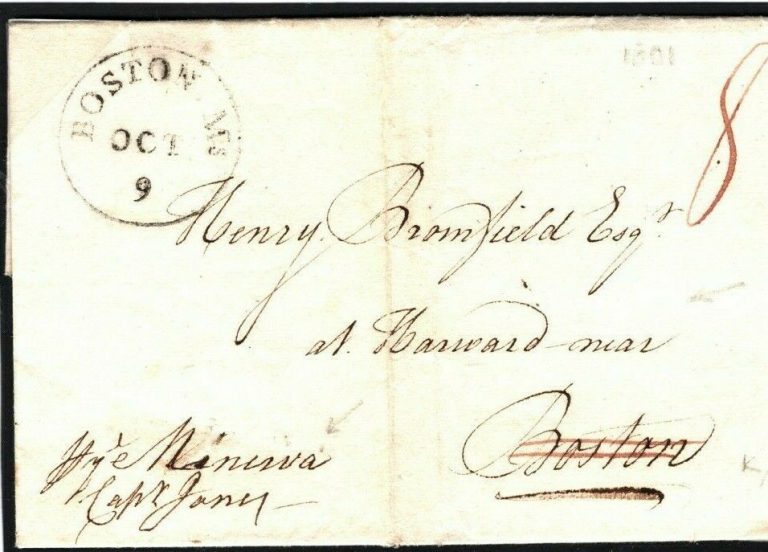 1801
BOSTON Ms
OCT
9
8
Henry Bromfield Esqr
at Harward near
Boston
Minerva
Captn Jones